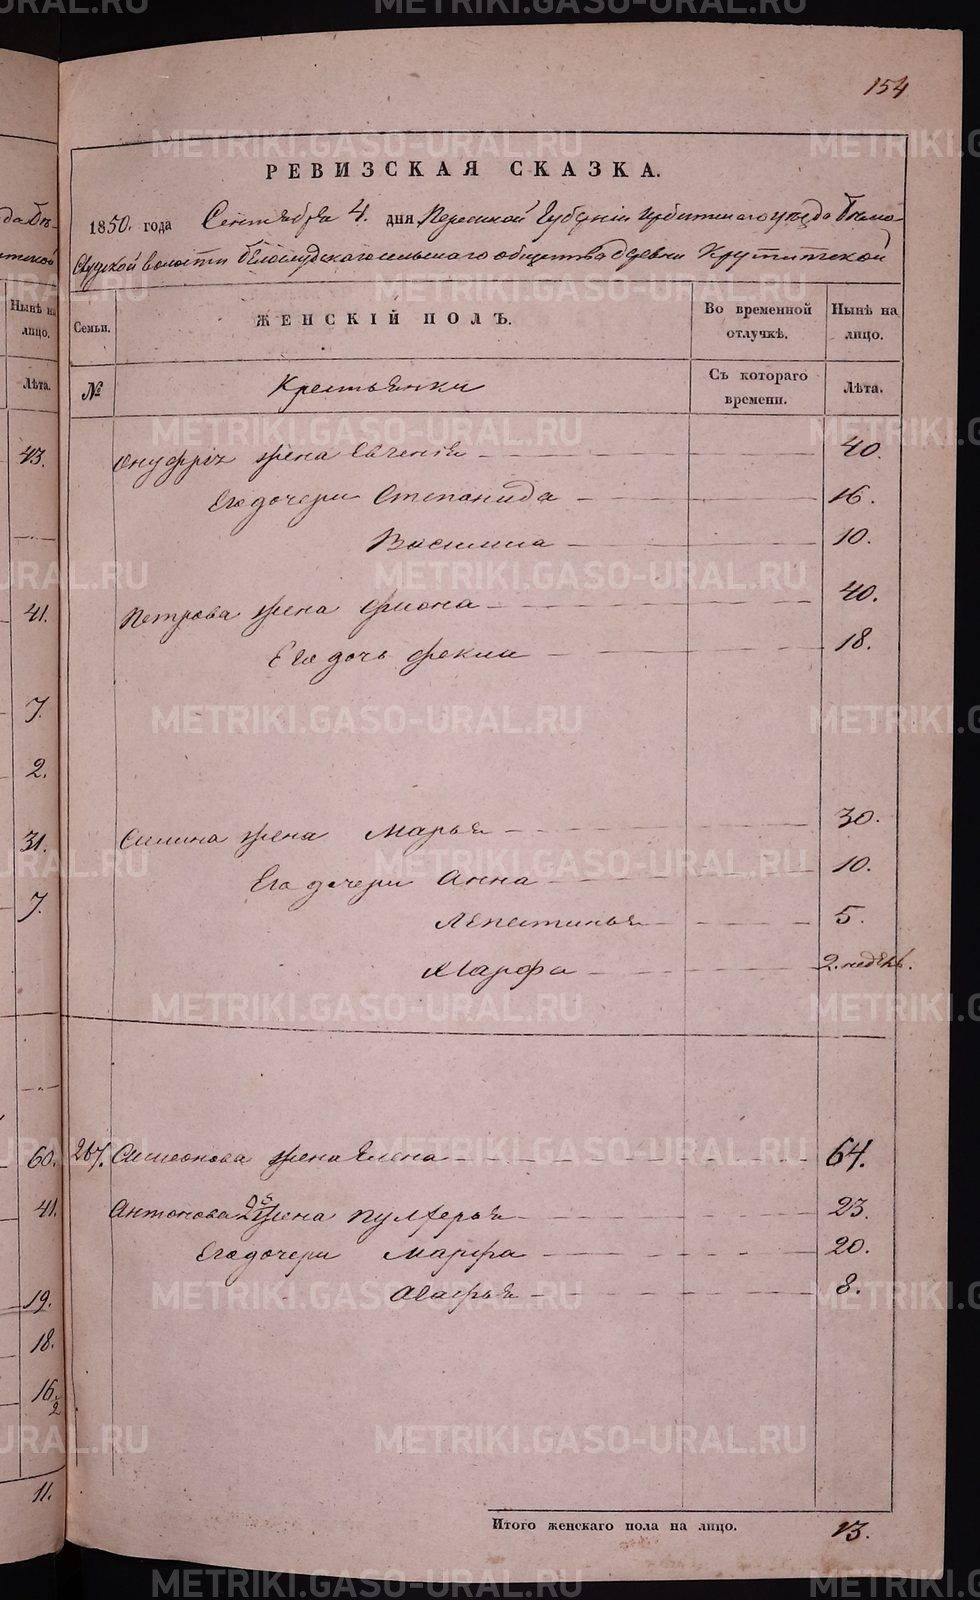 154
РЕВИЗСКАЯ СКАЗКА.
1850. года Сентября 4. дня Пермской Губернiи Ирбитскаго уѣзда Бѣло-
слудской волости Бѣлослудскаго сельскаго общества деревни Крутитской
Семьи.
ЖЕНСКІЙ ПОЛЪ.
Во временной отлучкѣ.
Нынѣ на лицо.
№
Крестьянки
Съ котораго времени.
Лѣта.
Онуфрiя жена Евгенiя 40.
Его дочери Степанида 16.
Василиса 10.
Петрова жена Фиона 40.
Его дочь Фекла 18.
Силина жена Марья 30.
Его дочери Анна 10.
Апестинья 5.
Марфа 2. недѣль.
267. Симеонова жена Елена 64.
Антонова 2я жена Пулхерья 23.
Его дочери Марфа 20.
Агафья 8.
Итого женскаго пола на лицо. 13.
Нынѣ на лицо.
Лѣта.
43.
41.
7.
2.
31.
7.
60.
41.
19.
18.
16
11.
METRIKI.GASO-URAL.RU